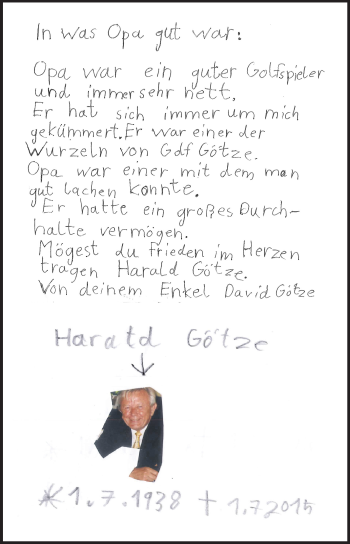 In was Opa gut war:
Opa war ein guter Golfspieler
und immer sehr nett.
Er hat sich immer um mich
gekümmert. Er war einer der
Wurzeln von Gdf Götze.
Opa war einer mit dem man
gut lachen konnte.
Er hatte ein großes Durch-
halte vermögen.
Mögest du frieden im Herzen
tragen Harald Götze.
Von deinem Enkel David Götze
Harald Götze
* 1.7.1938 † 1.7.2015